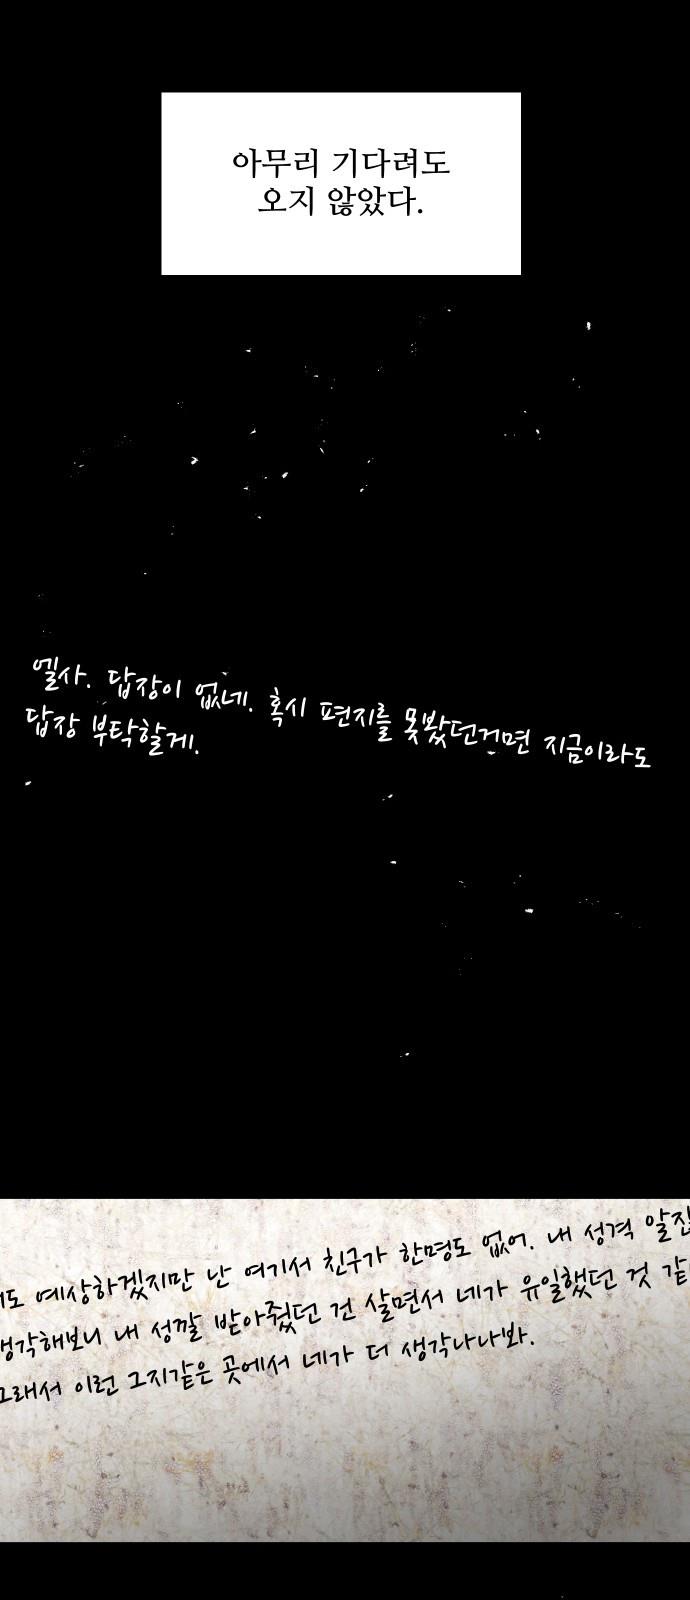 아무리 기다려도
오지 않았다.
엘사. 답장이 없네. 혹시 편지를 못봤던거면 지금이라도
답장 부탁할게.
예상하겠지만 난 여기서 친구가 한명도 없어. 내 성격
생각해보니 내 성깔 받아줬던 건 살면서 네가 유일했던 것
그래서 이런 그지같은 곳에서 네가 더 생각나나봐.